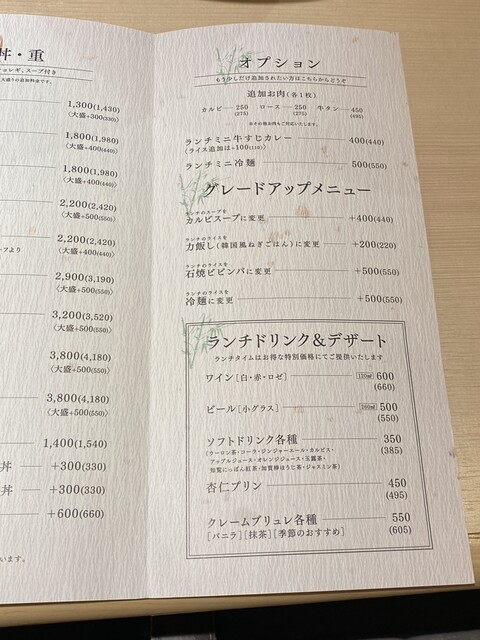 丼・重
ョレギ、スープ付き
1,300(1,430)
〈大盛+300(330)〉
1,800(1,980)
〈大盛+400(440)〉
1,800(1,980)
〈大盛+400(440)〉
2,200(2,420)
〈大盛+500(550)〉
2,200(2,420)
〈大盛+400(440)〉
2,900(3,190)
〈大盛+500(550)〉
3,200(3,520)
〈大盛+500(550)〉
3,800(4,180)
〈大盛+500(550)〉
3,800(4,180)
〈大盛+500(550)〉
1,400(1,540)
丼 +300(330)
丼 +300(330)
+600(660)
います。
オプション
もう少しだけ追加されたい方はこちらからどうぞ
追加お肉(各1枚)
カルビ 250 ロース 250 牛タン 450
(275) (275) (495)
ランチミニ牛すじカレー 400(440)
(ライス追加は+100(110))
ランチミニ冷麺 500(550)
グレードアップメニュー
ランチのスープを
カルビスープに変更 +400(440)
ランチのライスを
力飯し(韓国風ねぎごはん)に変更 +200(220)
ランチのライスを
石焼ビビンバに変更 +500(550)
ランチのライスを
冷麺に変更 +500(550)
ランチドリンク&デザート
ランチタイムはお得な特別価格にてご提供いたします
ワイン[白・赤・ロゼ] 120ml 600
(660)
ビール[小グラス] 260ml 500
(550)
ソフトドリンク各種 350
(385)
(ウーロン茶・コーラ・ジンジャーエール・カルピス・
アップルジュース・オレンジジュース・玉露茶・
知覧にっぽん紅茶・加賀棒ほうじ茶・ジャスミン茶)
杏仁プリン 450
(495)
クレームブリュレ各種 550
[バニラ][抹茶][季節のおすすめ] (605)